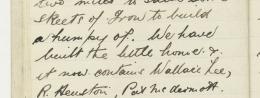 two miles to
skeets of Iron to build
a humpy of. We have
built the little home. &
it now contains Wallace Lee,
R. Heuston, Pat McDermott.